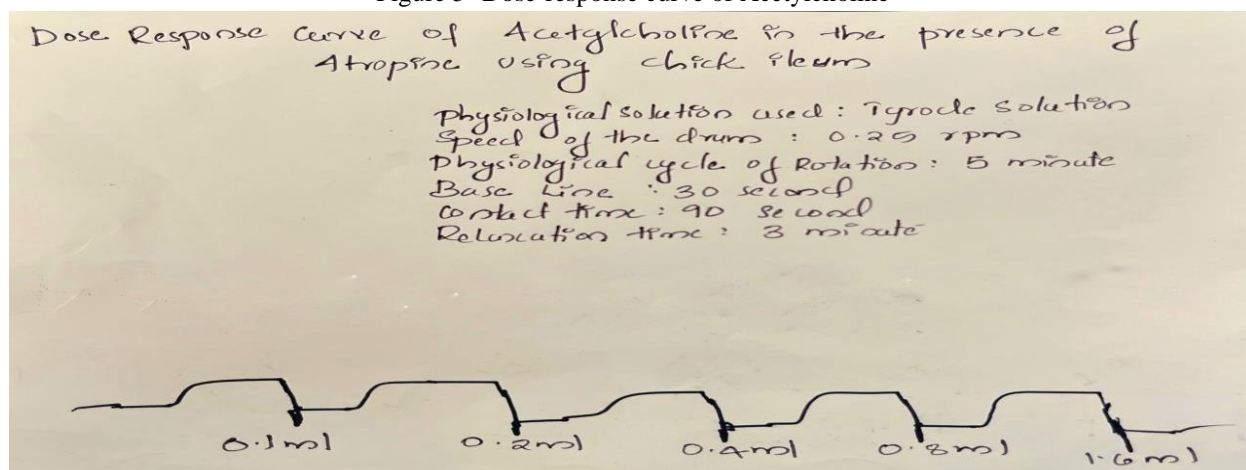 Figure 3- Dose response curve of Acetylcholine
Dose Response Curve of Acetylcholine in the presence of
Atropine using chick ileum
Physiological solution used: Tyrode solution
Speed of the drum : 0.25 rpm
Physiological cycle of Rotation: 5 minute
Base Line : 30 second
Contact time: 90 second
Relaxation time: 3 minute
0.1ml 0.2ml 0.4ml 0.8ml 1.6ml